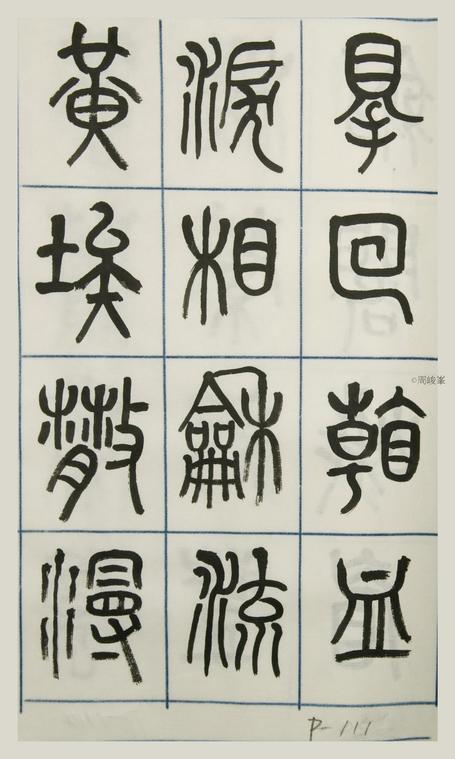 得回看血
淚相龢流
黃埃散漫
P-111
©周峻峯